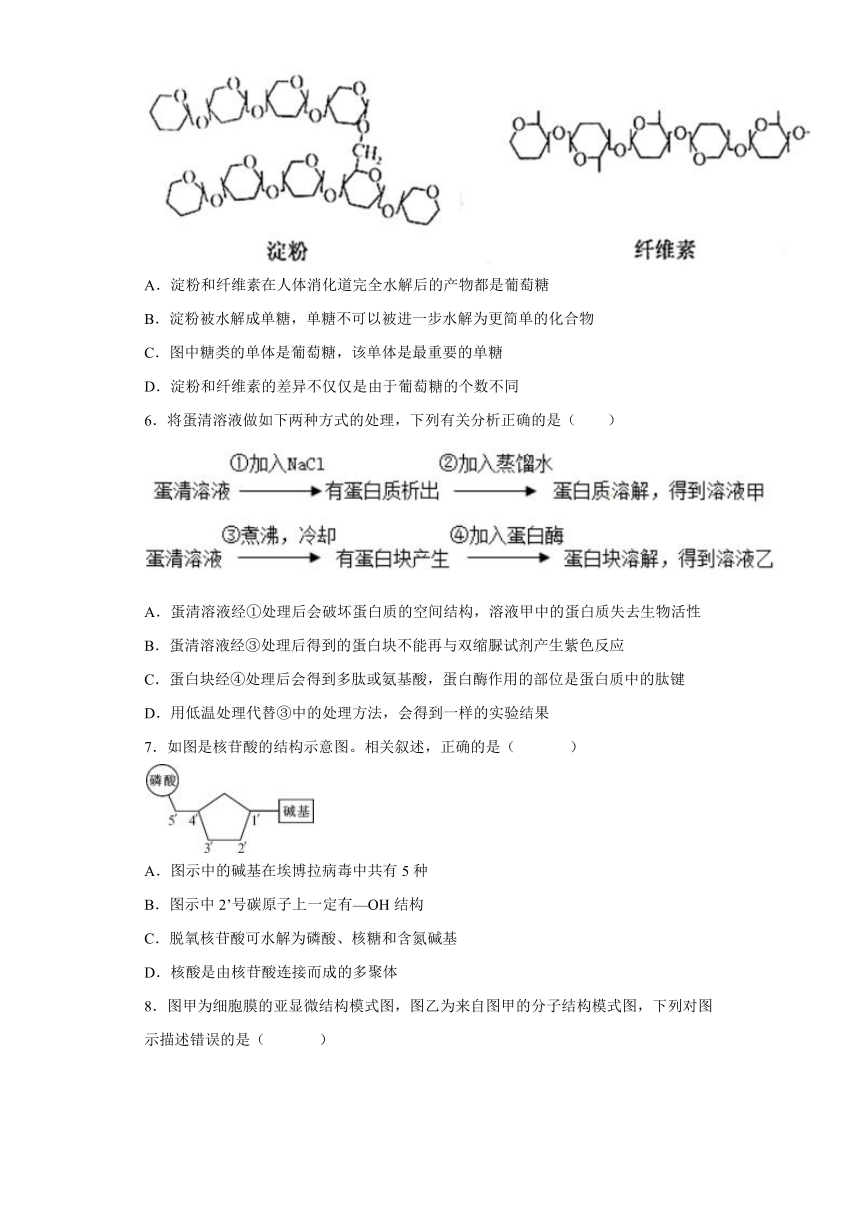 O O O O
O O O O
CH2
O O O O O
O O O O
O O O O O-
O O O O
淀粉
纤维素
A．淀粉和纤维素在人体消化道完全水解后的产物都是葡萄糖
B．淀粉被水解成单糖，单糖不可以被进一步水解为更简单的化合物
C．图中糖类的单体是葡萄糖，该单体是最重要的单糖
D．淀粉和纤维素的差异不仅仅是由于葡萄糖的个数不同
6．将蛋清溶液做如下两种方式的处理，下列有关分析正确的是（　　）
①加入NaCl ②加入蒸馏水
蛋清溶液 有蛋白质析出 蛋白质溶解，得到溶液甲
③煮沸，冷却 ④加入蛋白酶
蛋清溶液 有蛋白块产生 蛋白块溶解，得到溶液乙
A．蛋清溶液经①处理后会破坏蛋白质的空间结构，溶液甲中的蛋白质失去生物活性
B．蛋清溶液经③处理后得到的蛋白块不能再与双缩脲试剂产生紫色反应
C．蛋白块经④处理后会得到多肽或氨基酸，蛋白酶作用的部位是蛋白质中的肽键
D．用低温处理代替③中的处理方法，会得到一样的实验结果
7．如图是核苷酸的结构示意图。相关叙述，正确的是（　　）
磷酸
5′ 4′ 1′ 碱基
3′ 2′
A．图示中的碱基在埃博拉病毒中共有 5 种
B．图示中 2’号碳原子上一定有—OH 结构
C．脱氧核苷酸可水解为磷酸、核糖和含氮碱基
D．核酸是由核苷酸连接而成的多聚体
8．图甲为细胞膜的亚显微结构模式图，图乙为来自图甲的分子结构模式图，下列对图
示描述错误的是（　　）